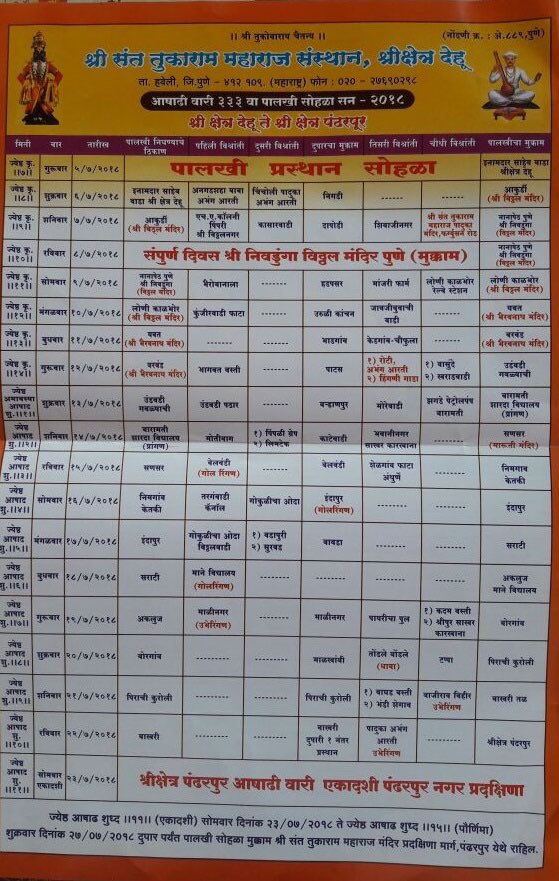 ।। श्री तुकोबाराय चैतन्य ।।
(नोंदणी क्र. : अे.८८९,पुणे)
श्री संत तुकाराम महाराज संस्थान, श्रीक्षेत्र देहू
ता. हवेली, जि.पुणे - ४१२ १०९. (महाराष्ट्र) फोन : ०२० - २७६९०२९८
आषाढी वारी ३३३ वा पालखी सोहळा सन - २०१८
श्री क्षेत्र देहू ते श्री क्षेत्र पंढरपूर
मिती वार तारीख पालखी निघण्याचे ठिकाण पहिली विश्रांती दुसरी विश्रांती दुपारचा मुक्काम तिसरी विश्रांती चौथी विश्रांती पालखीचा मुक्काम
ज्येष्ठ कृ. ।।७।। गुरूवार ५/७/२०१८ पालखी प्रस्थान सोहळा इनामदार साहेब वाडा श्रीक्षेत्र देहू
ज्येष्ठ कृ. ।।८।। शुक्रवार ६/७/२०१८ इनामदार साहेब वाडा श्री क्षेत्र देहू अनगडशहा बाबा अभंग आरती चिंचोली पादुका अभंग आरती निगडी ------ ------ आकुर्डी (श्री विठ्ठल मंदिर)
ज्येष्ठ कृ. ।।९।। शनिवार ७/७/२०१८ आकुर्डी (श्री विठ्ठल मंदिर) एच.ए.कॉलनी पिंपरी श्री विठ्ठलनगर कासारवाडी दापोडी शिवाजीनगर श्री संत तुकाराम महाराज पादुका मंदिर,फर्ग्युसन रोड नानापेठ पुणे श्री निवडुंगा (विठ्ठल मंदिर)
ज्येष्ठ कृ. ।।१०।। रविवार ८/७/२०१८ संपुर्ण दिवस श्री निवडुंगा विठ्ठल मंदिर पुणे (मुक्काम) नानापेठ पुणे श्री निवडुंगा (विठ्ठल मंदिर)
ज्येष्ठ कृ. ।।११।। सोमवार ९/७/२०१८ नानापेठ पुणे श्री निवडुंगा (विठ्ठल मंदिर) भैरोबानाला ------- हडपसर मांजरी फार्म लोणी काळभोर रेल्वे स्टेशन लोणी काळभोर (श्री विठ्ठल मंदिर)
ज्येष्ठ कृ. ।।१२।। मंगळवार १०/७/२०१८ लोणी काळभोर (श्री विठ्ठल मंदिर) कुंजीरवाडी फाटा ------- उरुळी कांचन जावजीबुवाची वाडी ------- यवत (श्री भैरवनाथ मंदिर)
ज्येष्ठ कृ. ।।१३।। बुधवार ११/७/२०१८ यवत (श्री भैरवनाथ मंदिर) ------- ------- भांडगाव केडगांव-चौफुला ------- वरवंड (श्री भैरवनाथ मंदिर)
ज्येष्ठ कृ. ।।१४।। गुरूवार १२/७/२०१८ वरवंड (श्री भैरवनाथ मंदिर) भागवत वस्ती ------- पाटस १) रोटी, अभंग आरती २) हिंगणी गाडा १) वासुंदे २) खराडवाडी उंडवडी गवळ्याची
ज्येष्ठ अमावस्या आषाढ ।।१।। शुक्रवार १३/७/२०१८ उंडवडी गवळ्याची उंडवडी पठार ------- बऱ्हाणपुर मोरेवाडी झगडे पेट्रोलपंप बारामती बारामती शारदा विद्यालय (प्रांगण)
ज्येष्ठ आषाढ शु.।।२।। शनिवार १४/७/२०१८ बारामती शारदा विद्यालय (प्रांगण) मोतीबाग १) पिंपळी ग्रेप २) लिमटेक काटेवाडी भवानीनगर साखर कारखाना ------- सणसर (मारूती मंदिर)
ज्येष्ठ आषाढ शु.।।३।। रविवार १५/७/२०१८ सणसर बेलवंडी (गोल रिंगण) ------- बेलवंडी शेळगांव फाटा अंथुर्णे ------- निमगाव केतकी
ज्येष्ठ आषाढ शु.।।४।। सोमवार १६/७/२०१८ निमगांव केतकी तरंगवाडी कॅनॉल गोकुळीचा ओढा इंदापुर (गोलरिंगण) ------- ------- इंदापुर
ज्येष्ठ आषाढ शु.।।५।। मंगळवार १७/७/२०१८ इंदापुर गोकुळीचा ओढा विठ्ठलवाडी १) वडापुरी २) सुरवड बावडा ------- ------- सराटी
ज्येष्ठ आषाढ शु.।।६।। बुधवार १८/७/२०१८ सराटी माने विद्यालय (गोलरिंगण) ------- ------- ------- ------- अकलुज माने विद्यालय
ज्येष्ठ आषाढ शु.।।७।। गुरूवार १९/७/२०१८ अकलुज माळीनगर (उभेरिंगण) ------- माळीनगर पायरीचा पुल १) कदम वस्ती २) श्रीपुर साखर कारखाना बोरगांव
ज्येष्ठ आषाढ शु.।।८।। शुक्रवार २०/७/२०१८ बोरगांव ------- ------- माळखांबी तोंडले बोंडले (धावा) टप्पा पिराची कुरोली
ज्येष्ठ आषाढ शु.।।९।। शनिवार २१/७/२०१८ पिराची कुरोली ------- ------- पिराची कुरोली १) वाघड वस्ती २) भंडी शेगाव बाजीराव विहीर उभेरिंगण वाखरी तळ
ज्येष्ठ आषाढ शु. ।।१०।। रविवार २२/७/२०१८ वाखरी ------- ------- वाखरी दुपारी १ नंतर प्रस्थान पादुका अभंग आरती उभेरिंगण ------- श्रीक्षेत्र पंढरपुर
ज्येष्ठ आषाढ शु. ।।११।। सोमवार एकादशी २३/७/२०१८ श्रीक्षेत्र पंढरपुर आषाढी वारी एकादशी पंढरपुर नगर प्रदक्षिणा
ज्येष्ठ आषाढ शुध्द ।।११।। (एकादशी) सोमवार दिनांक २३/०७/२०१८ ते ज्येष्ठ आषाढ शुध्द ।।१५।। (पौर्णिमा)
शुक्रवार दिनांक २७/०७/२०१८ दुपार पर्यंत पालखी सोहळा मुक्काम श्री संत तुकाराम महाराज मंदिर प्रदक्षिणा मार्ग,पंढरपुर येथे राहिल.